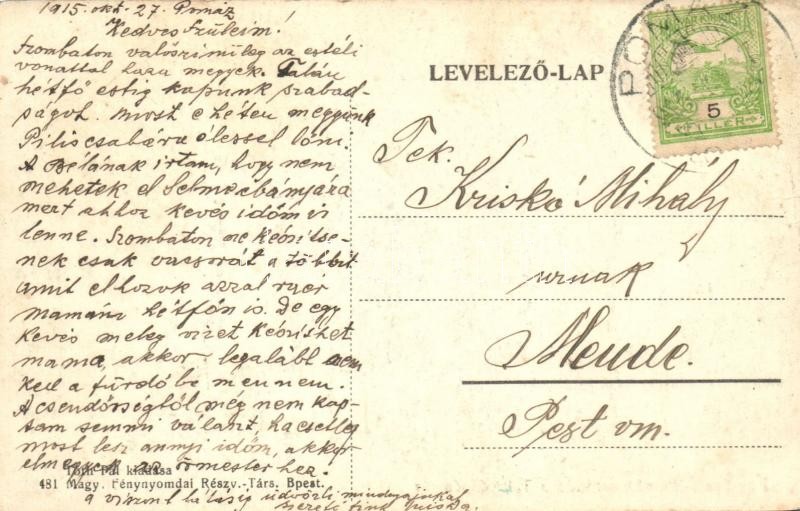 1915. okt. 27. Pomáz
Kedves Szüleim!
Szombaton valószinüleg az estéli
vonattal haza megyek. Talán
hétfő estig kapunk szabad-
ságot. Most e héten meggyünk
Piliscsabára élessel lőni.
A Bélának irtam, hogy nem
mehetek el Selmecbányára
mert ahhoz kevés időm is
lenne. Szombaton ne készitse-
nek csak vacsorát a többit
amit elhozok azzal
mamám hétfőn is. De egy
kevés meleg vizet készithet
mama, akkor legalább nem
kell a fürdőbe mennem.
A csendőrségtől még nem kap-
tam semmi választ, ha esetleg
most lesz annyi időm, akkor
elmegyek az őrmesterhez.
a viszontlátásig üdvözli mindnyájukat
szerető fiuk Miska.
Tóth Pál kiadása
481 Magy. Fénynyomdai Részv.-Társ. Bpest.
LEVELEZŐ-LAP
POMÁZ
MAGYAR KIR. POSTA
5
FILLÉR
Tek.
Kriskó Mihály
urnak
Mende.
Pest vm.